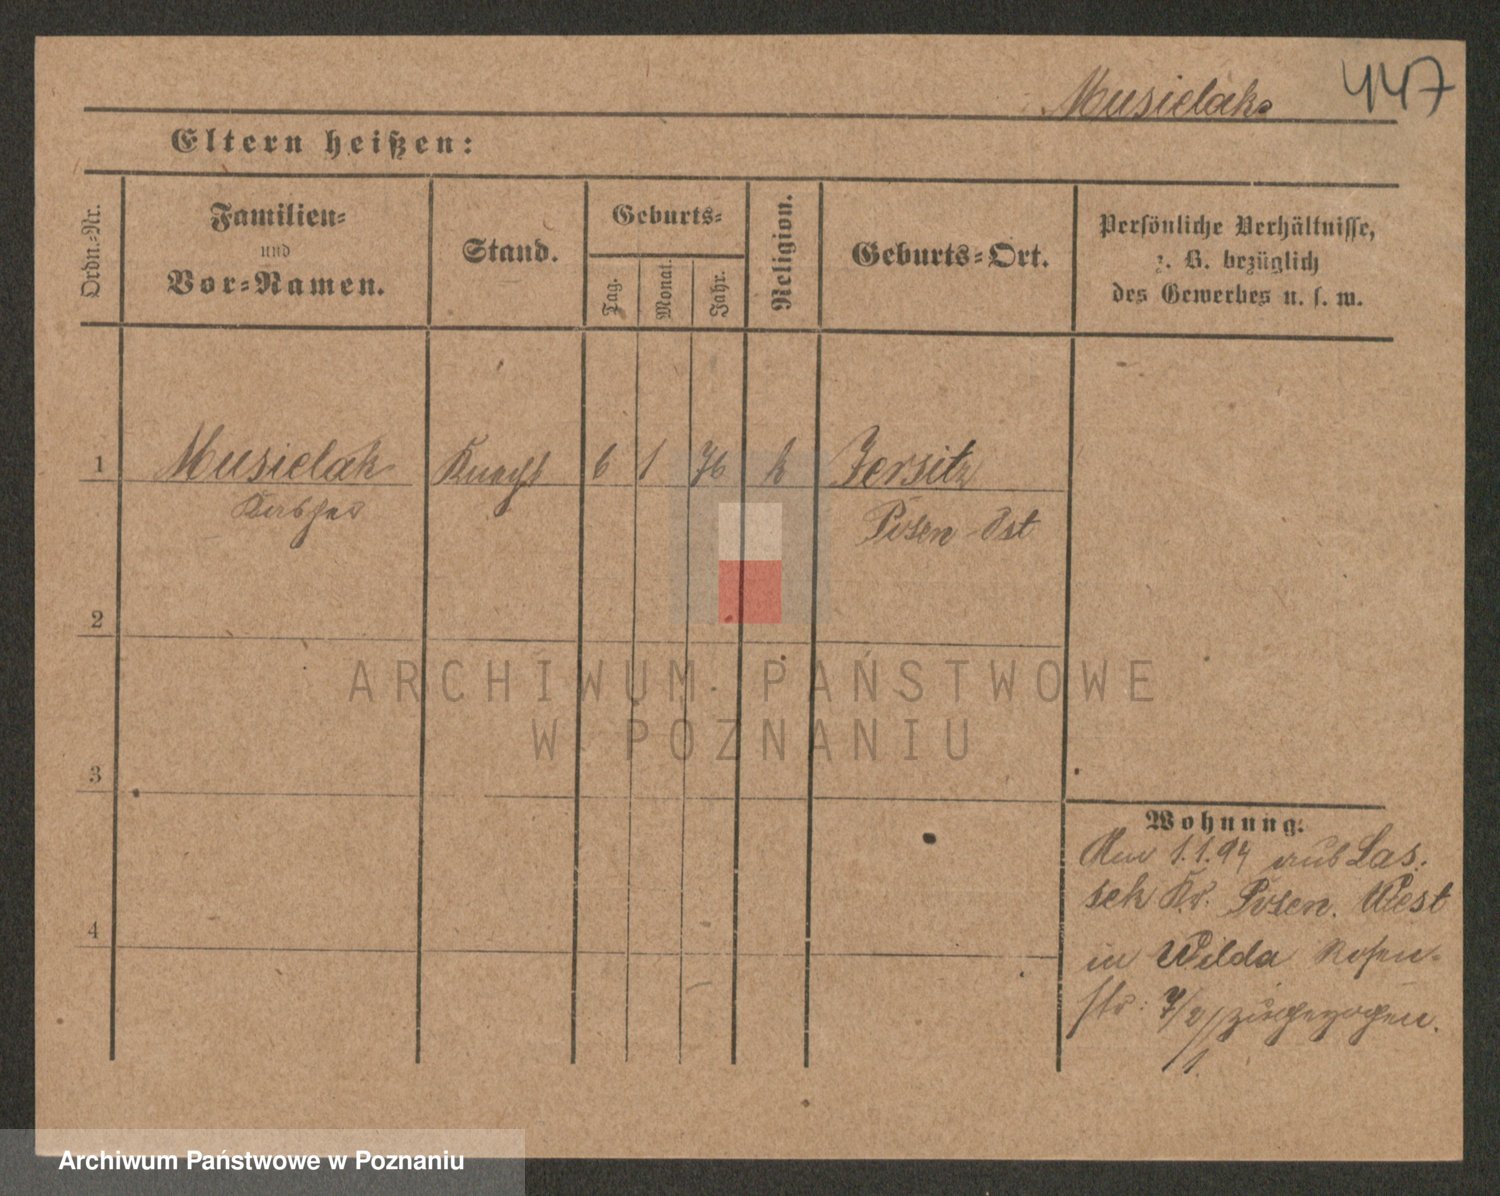 Musielak. 447
Eltern heißen:
Ordn.-Nr.
Familien-
und
Vor-Namen.
Stand.
Geburts-
Tag.
Monat.
Jahr.
Religion.
Geburts-Ort.
Persönliche Verhältnisse,
z. B. bezüglich
des Gewerbes u. s. w.
1 Musielak Knecht 6 1 76 k Jersitz
Kasper Posen Ost
2
3
4
Wohnung:
Am 1.1.94 aus Las-
sek Kr. Posen. West
in Wilda Rosen-
str: 7/2/ zugezogen.
1.
ARCHIWUM PAŃSTWOWE
W POZNANIU
Archiwum Państwowe w Poznaniu